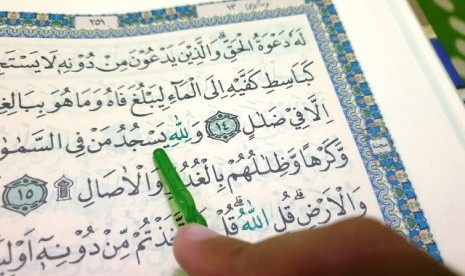 ٢٥١ ١٣
لَهٗ دَعْوَةُ الْحَقِّۗ وَالَّذِيْنَ يَدْعُوْنَ مِنْ دُوْنِهٖ لَا يَسْتَج
كَبَاسِطِ كَفَّيْهِ اِلَى الْمَاۤءِ لِيَبْلُغَ فَاهُ وَمَا هُوَ بِبَالِغِ
اِلَّا فِيْ ضَلٰلٍ ١٤ وَلِلّٰهِ يَسْجُدُ مَنْ فِى السَّمٰو
وَّكَرْهًا وَّظِلٰلُهُمْ بِالْغُدُوِّ وَالْاٰصَالِ ۩ ١٥
وَالْاَرْضِۗ قُلِ اللّٰهُ ۗقُلْ تَّخَذْتُمْ مِّنْ دُوْنِهٖٓ اَوْلِي